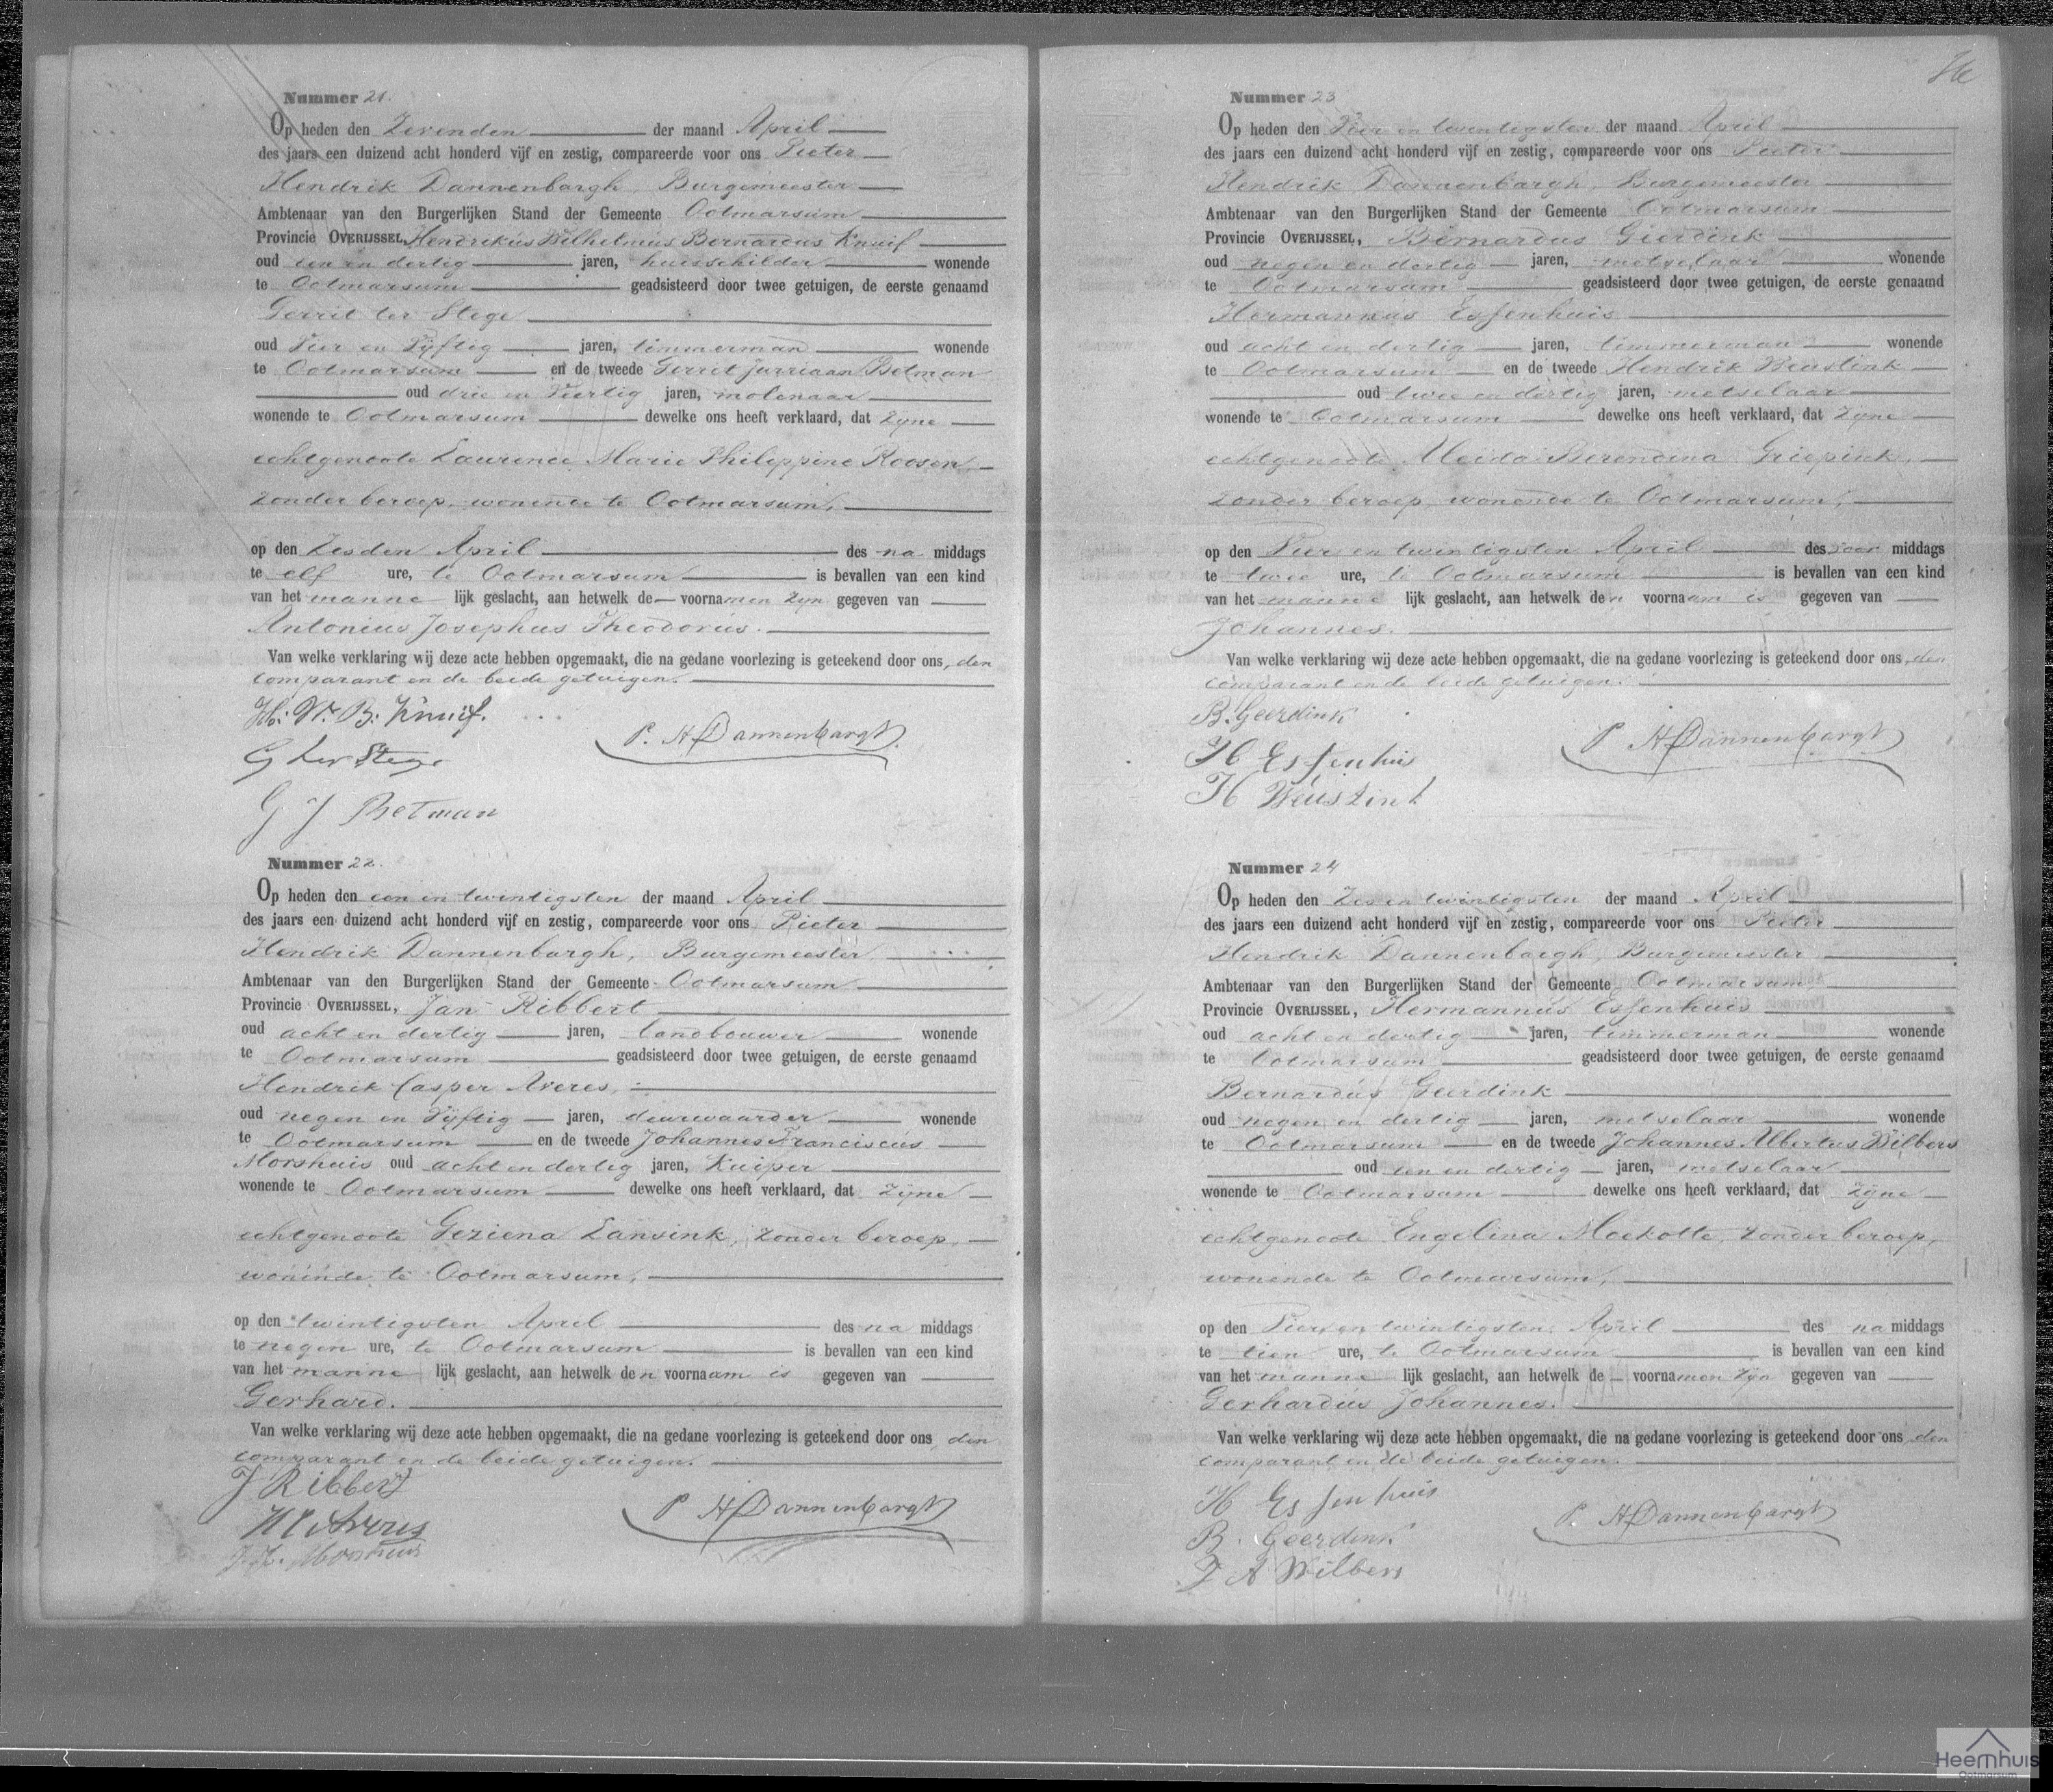 Nummer 21.
Op heden den Zevenden der maand April
des jaars een duizend acht honderd vijf en zestig, compareerde voor ons Pieter
Hendrik Dannenbargh, Burgemeester
Ambtenaar van den Burgerlijken Stand der Gemeente Ootmarsum
Provincie OVERIJSSEL, Hendrikus Wilhelmus Bernardus Knuif
oud een en dertig jaren, huisschilder wonende
te Ootmarsum geadsisteerd door twee getuigen, de eerste genaamd
Gerrit ter Stege
oud Vier en Vijftig jaren, timmerman wonende
te Ootmarsum en de tweede Gerrit Jurriaan Betman
oud drie en Veertig jaren, molenaar
wonende te Ootmarsum dewelke ons heeft verklaard, dat Zijne
echtgenoote Laurence Marie Philippine Roosen,
zonder beroep, wonende te Ootmarsum,
op den Zesden April des na middags
te elf ure, te Ootmarsum is bevallen van een kind
van het manne lijk geslacht, aan hetwelk de voornamen zijn gegeven van
Antonius Josephus Theodorus.
Van welke verklaring wij deze acte hebben opgemaakt, die na gedane voorlezing is geteekend door ons, den
comparant en de beide getuigen.
H: W. B: Knuif.
P. H Dannenbargh
G ter Stege
G J Betman
Nummer 22.
Op heden den een en twintigsten der maand April
des jaars een duizend acht honderd vijf en zestig, compareerde voor ons Pieter
Hendrik Dannenbargh, Burgemeester
Ambtenaar van den Burgerlijken Stand der Gemeente Ootmarsum
Provincie OVERIJSSEL, Jan Ribbert
oud acht en dertig jaren, landbouwer wonende
te Ootmarsum geadsisteerd door twee getuigen, de eerste genaamd
Hendrik Casper Averes,
oud negen en Vijftig jaren, deurwaarder wonende
te Ootmarsum en de tweede Johannes Franciscus
Morshuis oud acht en dertig jaren, Kuiper
wonende te Ootmarsum dewelke ons heeft verklaard, dat Zijne
echtgenoote Geziena Lansink, zonder beroep,
wonende te Ootmarsum,
op den twintigsten April des na middags
te negen ure, te Ootmarsum is bevallen van een kind
van het manne lijk geslacht, aan hetwelk den voornaam is gegeven van
Gerhard.
Van welke verklaring wij deze acte hebben opgemaakt, die na gedane voorlezing is geteekend door ons, den
comparant en de beide getuigen.
J Ribbert
P H Dannenbargh
H C Averes
J. F. Morshuis
Nummer 23
Op heden den Vier en twintigsten der maand April
des jaars een duizend acht honderd vijf en zestig, compareerde voor ons Pieter
Hendrik Dannenbargh, Burgemeester
Ambtenaar van den Burgerlijken Stand der Gemeente Ootmarsum
Provincie OVERIJSSEL, Bernardus Gierdink
oud negen en dertig jaren, metselaar wonende
te Ootmarsum geadsisteerd door twee getuigen, de eerste genaamd
Hermannus Essenhuis
oud acht en dertig jaren, timmerman wonende
te Ootmarsum en de tweede Hendrik Weustink
oud twee en dertig jaren, metselaar
wonende te Ootmarsum dewelke ons heeft verklaard, dat Zijne
echtgenoote Aleida Berendina Griepink,
zonder beroep, wonende te Ootmarsum,
op den Vier en twintigsten April des voor middags
te twee ure, te Ootmarsum is bevallen van een kind
van het manne lijk geslacht, aan hetwelk den voornaam is gegeven van
Johannes.
Van welke verklaring wij deze acte hebben opgemaakt, die na gedane voorlezing is geteekend door ons, den
comparant en de beide getuigen.
B. Geerdink
P H Dannenbargh
H Essenhuis
H Weustink
Nummer 24
Op heden den Zes en twintigsten der maand April
des jaars een duizend acht honderd vijf en zestig, compareerde voor ons Pieter
Hendrik Dannenbargh, Burgemeester
Ambtenaar van den Burgerlijken Stand der Gemeente Ootmarsum
Provincie OVERIJSSEL, Hermannus Essenhuis
oud acht en dertig jaren, timmerman wonende
te Ootmarsum geadsisteerd door twee getuigen, de eerste genaamd
Bernardus Geerdink
oud negen en dertig jaren, metselaar wonende
te Ootmarsum en de tweede Johannes Albertus Wilbers
oud een en dertig jaren, metselaar
wonende te Ootmarsum dewelke ons heeft verklaard, dat Zijne
echtgenoote Engelina Mockotte, zonder beroep,
wonende te Ootmarsum,
op den Vier en twintigsten April des na middags
te tien ure, te Ootmarsum is bevallen van een kind
van het manne lijk geslacht, aan hetwelk de voornamen zijn gegeven van
Gerhardus Johannes.
Van welke verklaring wij deze acte hebben opgemaakt, die na gedane voorlezing is geteekend door ons, den
comparant en de beide getuigen.
H Essenhuis
P. H Dannenbargh
B. Geerdink
J A Wilbers
Heemhuis
Ootmarsum